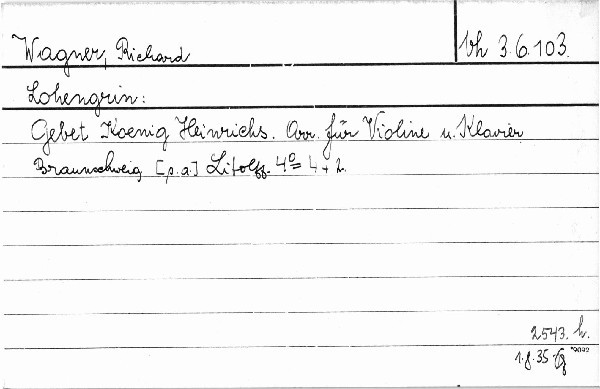 Wagner, Richard
Vh 3.6.103.
Lohengrin:
Gebet Koenig Heinrichs. Arr. für Violine u. Klavier
Braunschweig [s.a.] Litolff. 4º = 4 + 2.
2543. h.
1.8.35